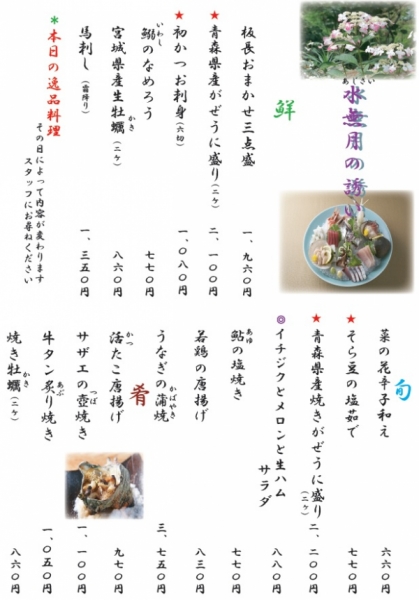 水無月の誘い
あじさい
鮮
板長おまかせ三点盛 一、九六〇円
★青森県産がぜうに盛り(二ケ) 二、一〇〇円
★初かつお刺身(六切) 一、〇八〇円
鰯のなめろう 七七〇円
いわし
宮城県産生牡蠣(二ケ) 八六〇円
かき
馬刺し(霜降り) 一、三五〇円
＊本日の逸品料理
その日によって内容が変わります
スタッフにお尋ねください
旬
菜の花辛子和え 六六〇円
★そら豆の塩茹で 七七〇円
★青森県産焼きがぜうに盛り(二ケ) 二、二〇〇円
◎イチジクとメロンと生ハム
サラダ 八八〇円
鮎の塩焼き 七七〇円
あゆ
若鶏の唐揚げ 八三〇円
うなぎの蒲焼 三、七五〇円
かばやき
肴
活たこ唐揚げ 九七〇円
かつ
サザエの壺焼き 一、一〇〇円
つぼ
牛タン炙り焼き 一、〇五〇円
あぶ
焼き牡蠣(二ケ) 八六〇円
かき